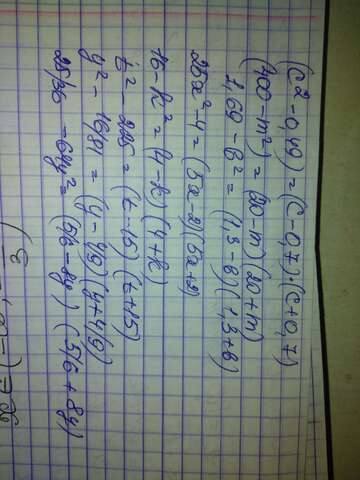 (c2-0,49)=(c-0,7)·(c+0,7)
(400-m²)=(20-m)(20+m)
1,69-b²=(1,3-b)(1,3+b)
25a²-4=(5a-2)(5a+2)
16-k²=(4-k)(4+k)
t²-225=(t-15)(t+15)
y²-16/81=(y-4/9)(y+4/9)
25/36-64y²=(5/6-8y)(5/6+8y)